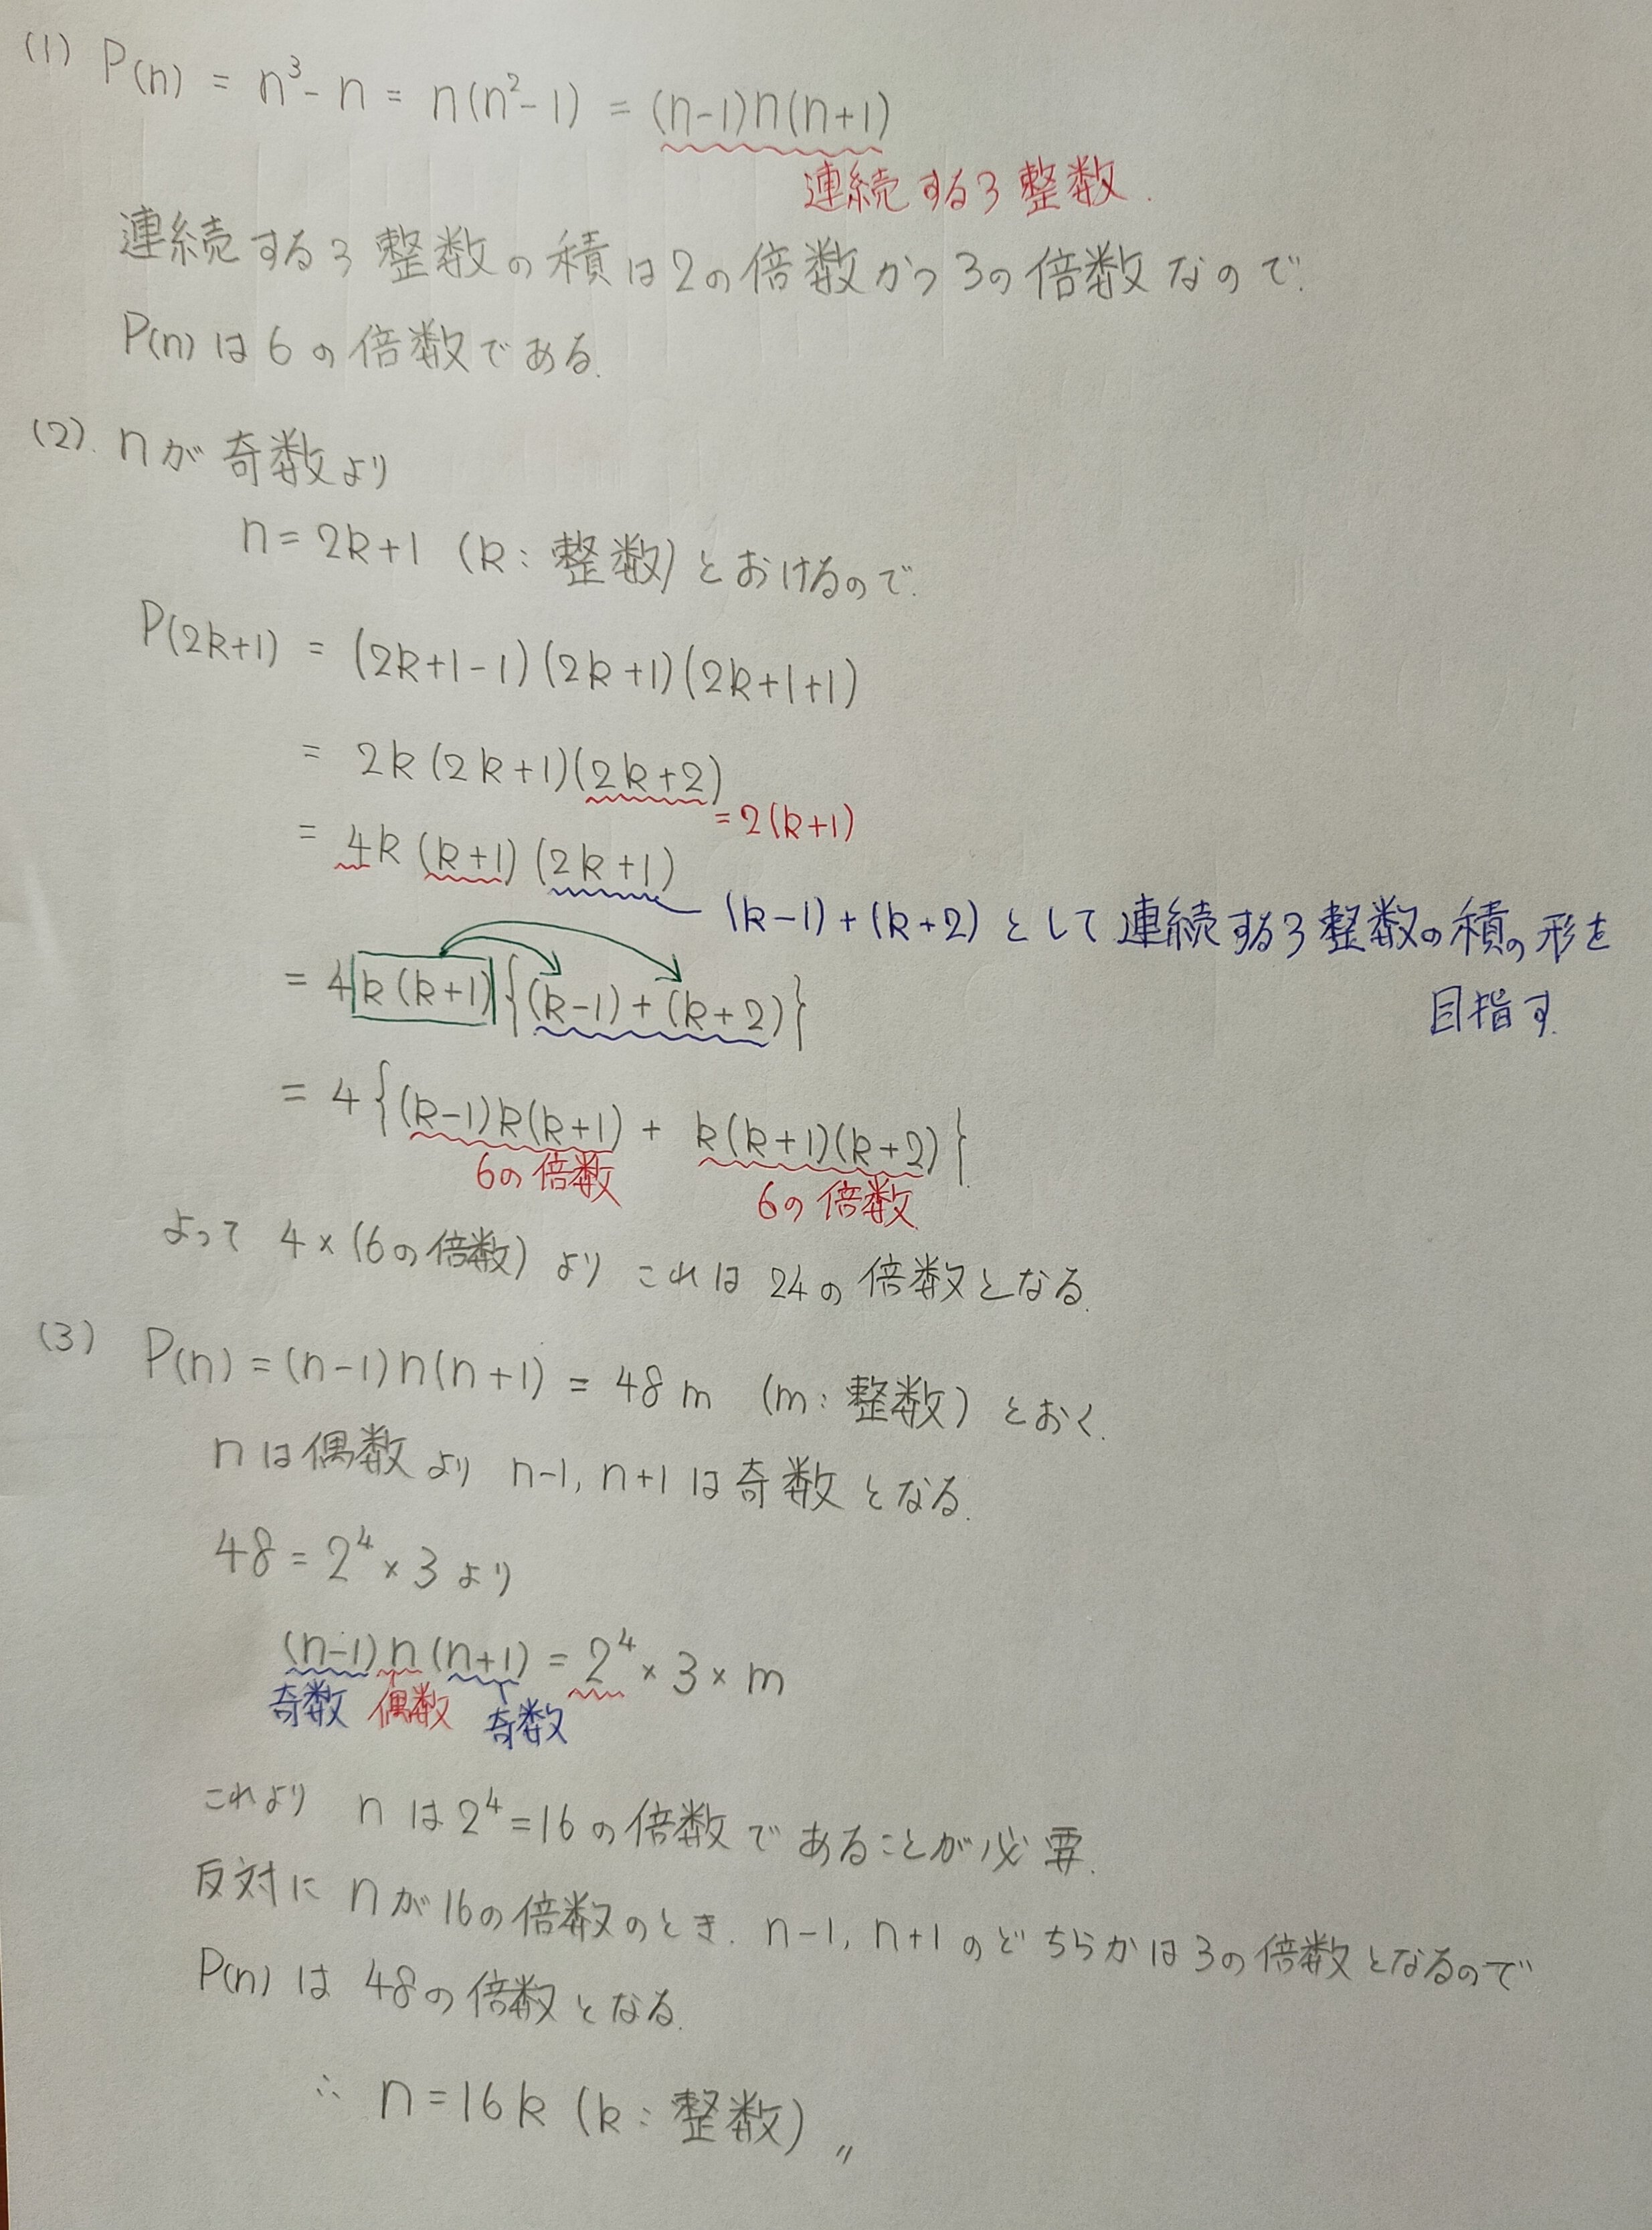 (1) P(n) = n³-n = n(n²-1) = (n-1)n(n+1)
連続する3整数.
連続する3整数の積は2の倍数かつ3の倍数なので.
P(n)は6の倍数である.
(2). nが奇数より
n=2k+1 (k:整数)とおけるので.
P(2k+1) = (2k+1-1)(2k+1)(2k+1+1)
= 2k(2k+1)(2k+2)
=2(k+1)
= 4k(k+1)(2k+1)
(k-1)+(k+2)として連続する3整数の積の形を
= 4k(k+1){(k-1)+(k+2)}
目指す.
= 4{(k-1)k(k+1) + k(k+1)(k+2)}
6の倍数 6の倍数
よって 4×(6の倍数)より これは24の倍数となる.
(3) P(n)=(n-1)n(n+1) = 48m (m:整数)とおく.
nは偶数より n-1, n+1は奇数となる.
48=2⁴×3より
(n-1)n(n+1) = 2⁴×3×m
奇数 偶数 奇数
これより nは2⁴=16の倍数であることが必要.
反対に nが16の倍数のとき. n-1, n+1のどちらかは3の倍数となるので
P(n)は48の倍数となる.
∴ n=16k (k:整数)〃